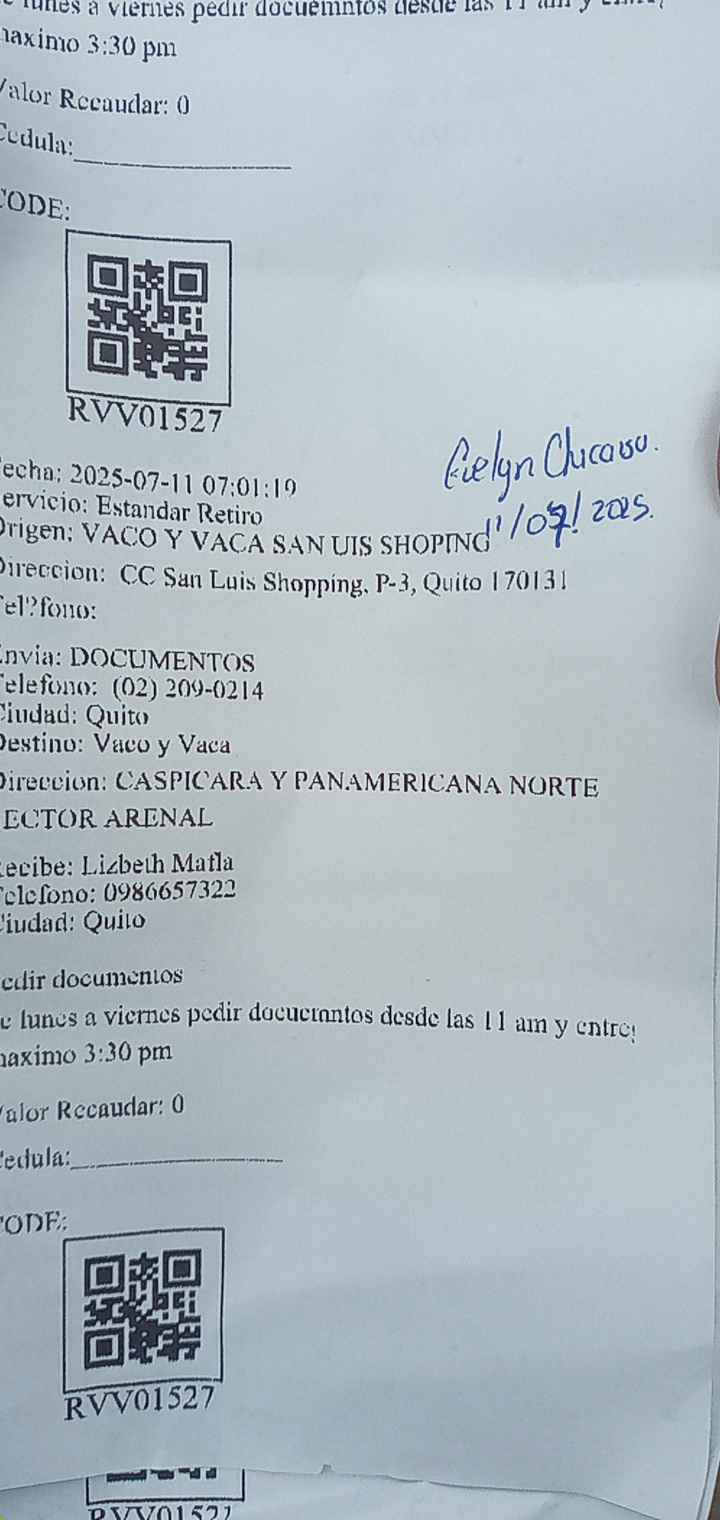 lunes a viernes pedir docuemntos desde las 11 am y
maximo 3:30 pm
Valor Recaudar: 0
Cedula:
CODE:
RVV01527
echa: 2025-07-11 07:01:19
ervicio: Estandar Retiro
Origen: VACO Y VACA SAN UIS SHOPING
Direccion: CC San Luis Shopping, P-3, Quito 170131
Tel?fono:
Evelyn Chicaisa.
11/07/2025.
Envia: DOCUMENTOS
Telefono: (02) 209-0214
Ciudad: Quito
Destino: Vaco y Vaca
Direccion: CASPICARA Y PANAMERICANA NORTE
ECTOR ARENAL
Recibe: Lizbeth Mafla
Telefono: 0986657322
Ciudad: Quito
edir documentos
e lunes a viernes pedir docuemntos desde las 11 am y entreg
maximo 3:30 pm
Valor Recaudar: 0
Cedula:
CODE:
RVV01527
RVV01527